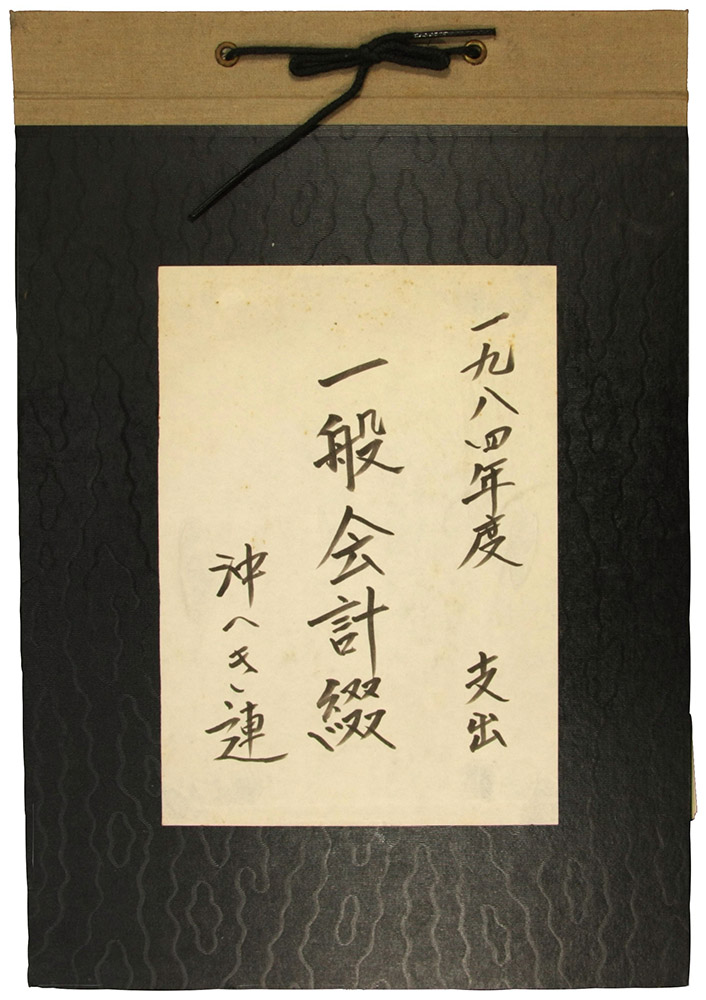 一九八四年度 支出
一般会計綴
沖へき連